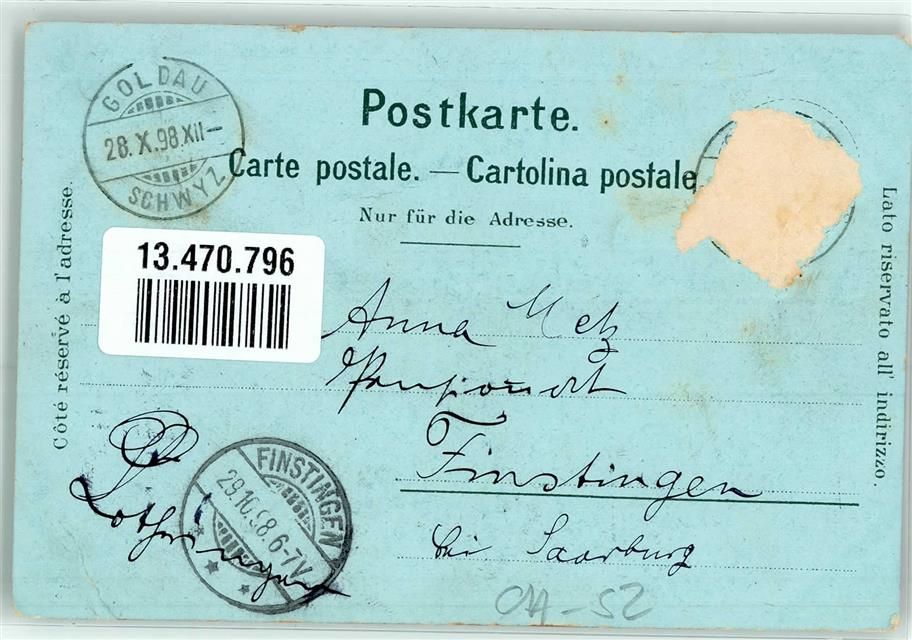 GOLDAU
28.X.98.XII–
SCHWYZ
Postkarte.
Carte postale. — Cartolina postale
Nur für die Adresse.
Côté réservé à l'adresse.
Lato riservato all' indirizzo.
13.470.796
Anna Metz
Pensionat
Finstingen
bei Saarburg
Lothringen
FINSTINGEN
29.10.98.6-7V.